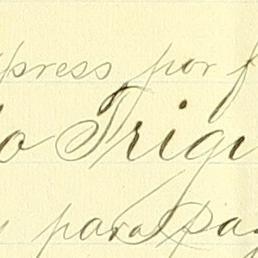 press por f
o Trigu
para pag